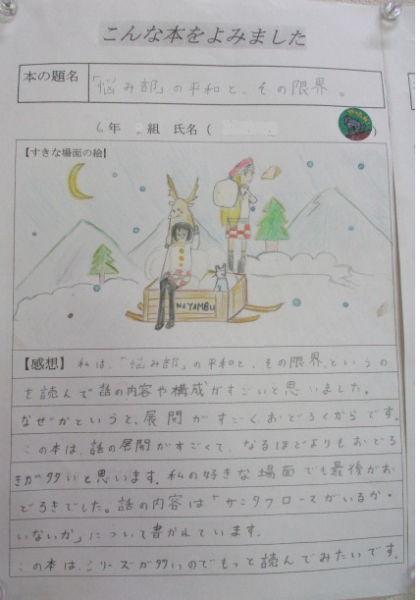 こんな本をよみました
本の題名
「悩み部」の平和と、その限界。
年 組 氏名 ( )
【すきな場面の絵】
NAYAMBU
【感想】 私は、「悩み部」の平和と、その限界、というの
を読んで話の内容や構成がすごいと思いました。
なぜかというと、展開がすごくおどろくからです。
この本は、話の展開がすごくて、なるほどよりもおどろ
きが多いと思います。私の好きな場面でも最後がお
どろきでした。話の内容は「サンタクロースがいるか・
いないか」について書かれています。
この本は、シリーズが多いのでもっと読んでみたいです。